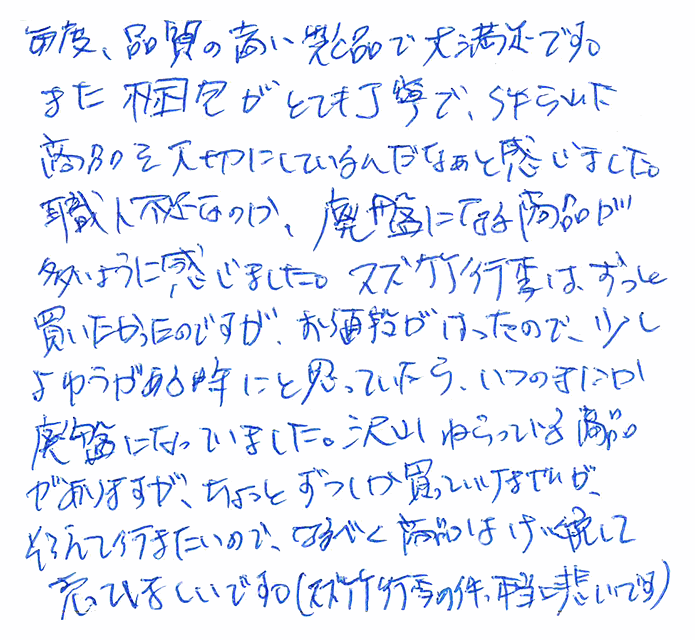 毎度、品質の高い製品で大満足です。
また梱包がとても丁寧で、
商品を大切にしているんだなぁと感じました。
職人不足なのか、廃盤になる商品が
多いように感じました。スズ竹行李は、ずっと
買いたかったのですが、お値段がはったので、少し
よゆうがある時にと思っていたら、いつのまにか
廃盤になっていました。沢山ねらっている商品
がありますが、ちょっとずつしか買っていけませんが、
そろえて行きたいので、なるべく商品はけい続して
売ってほしいです。(スズ竹行李の件、本当に悲しいです)